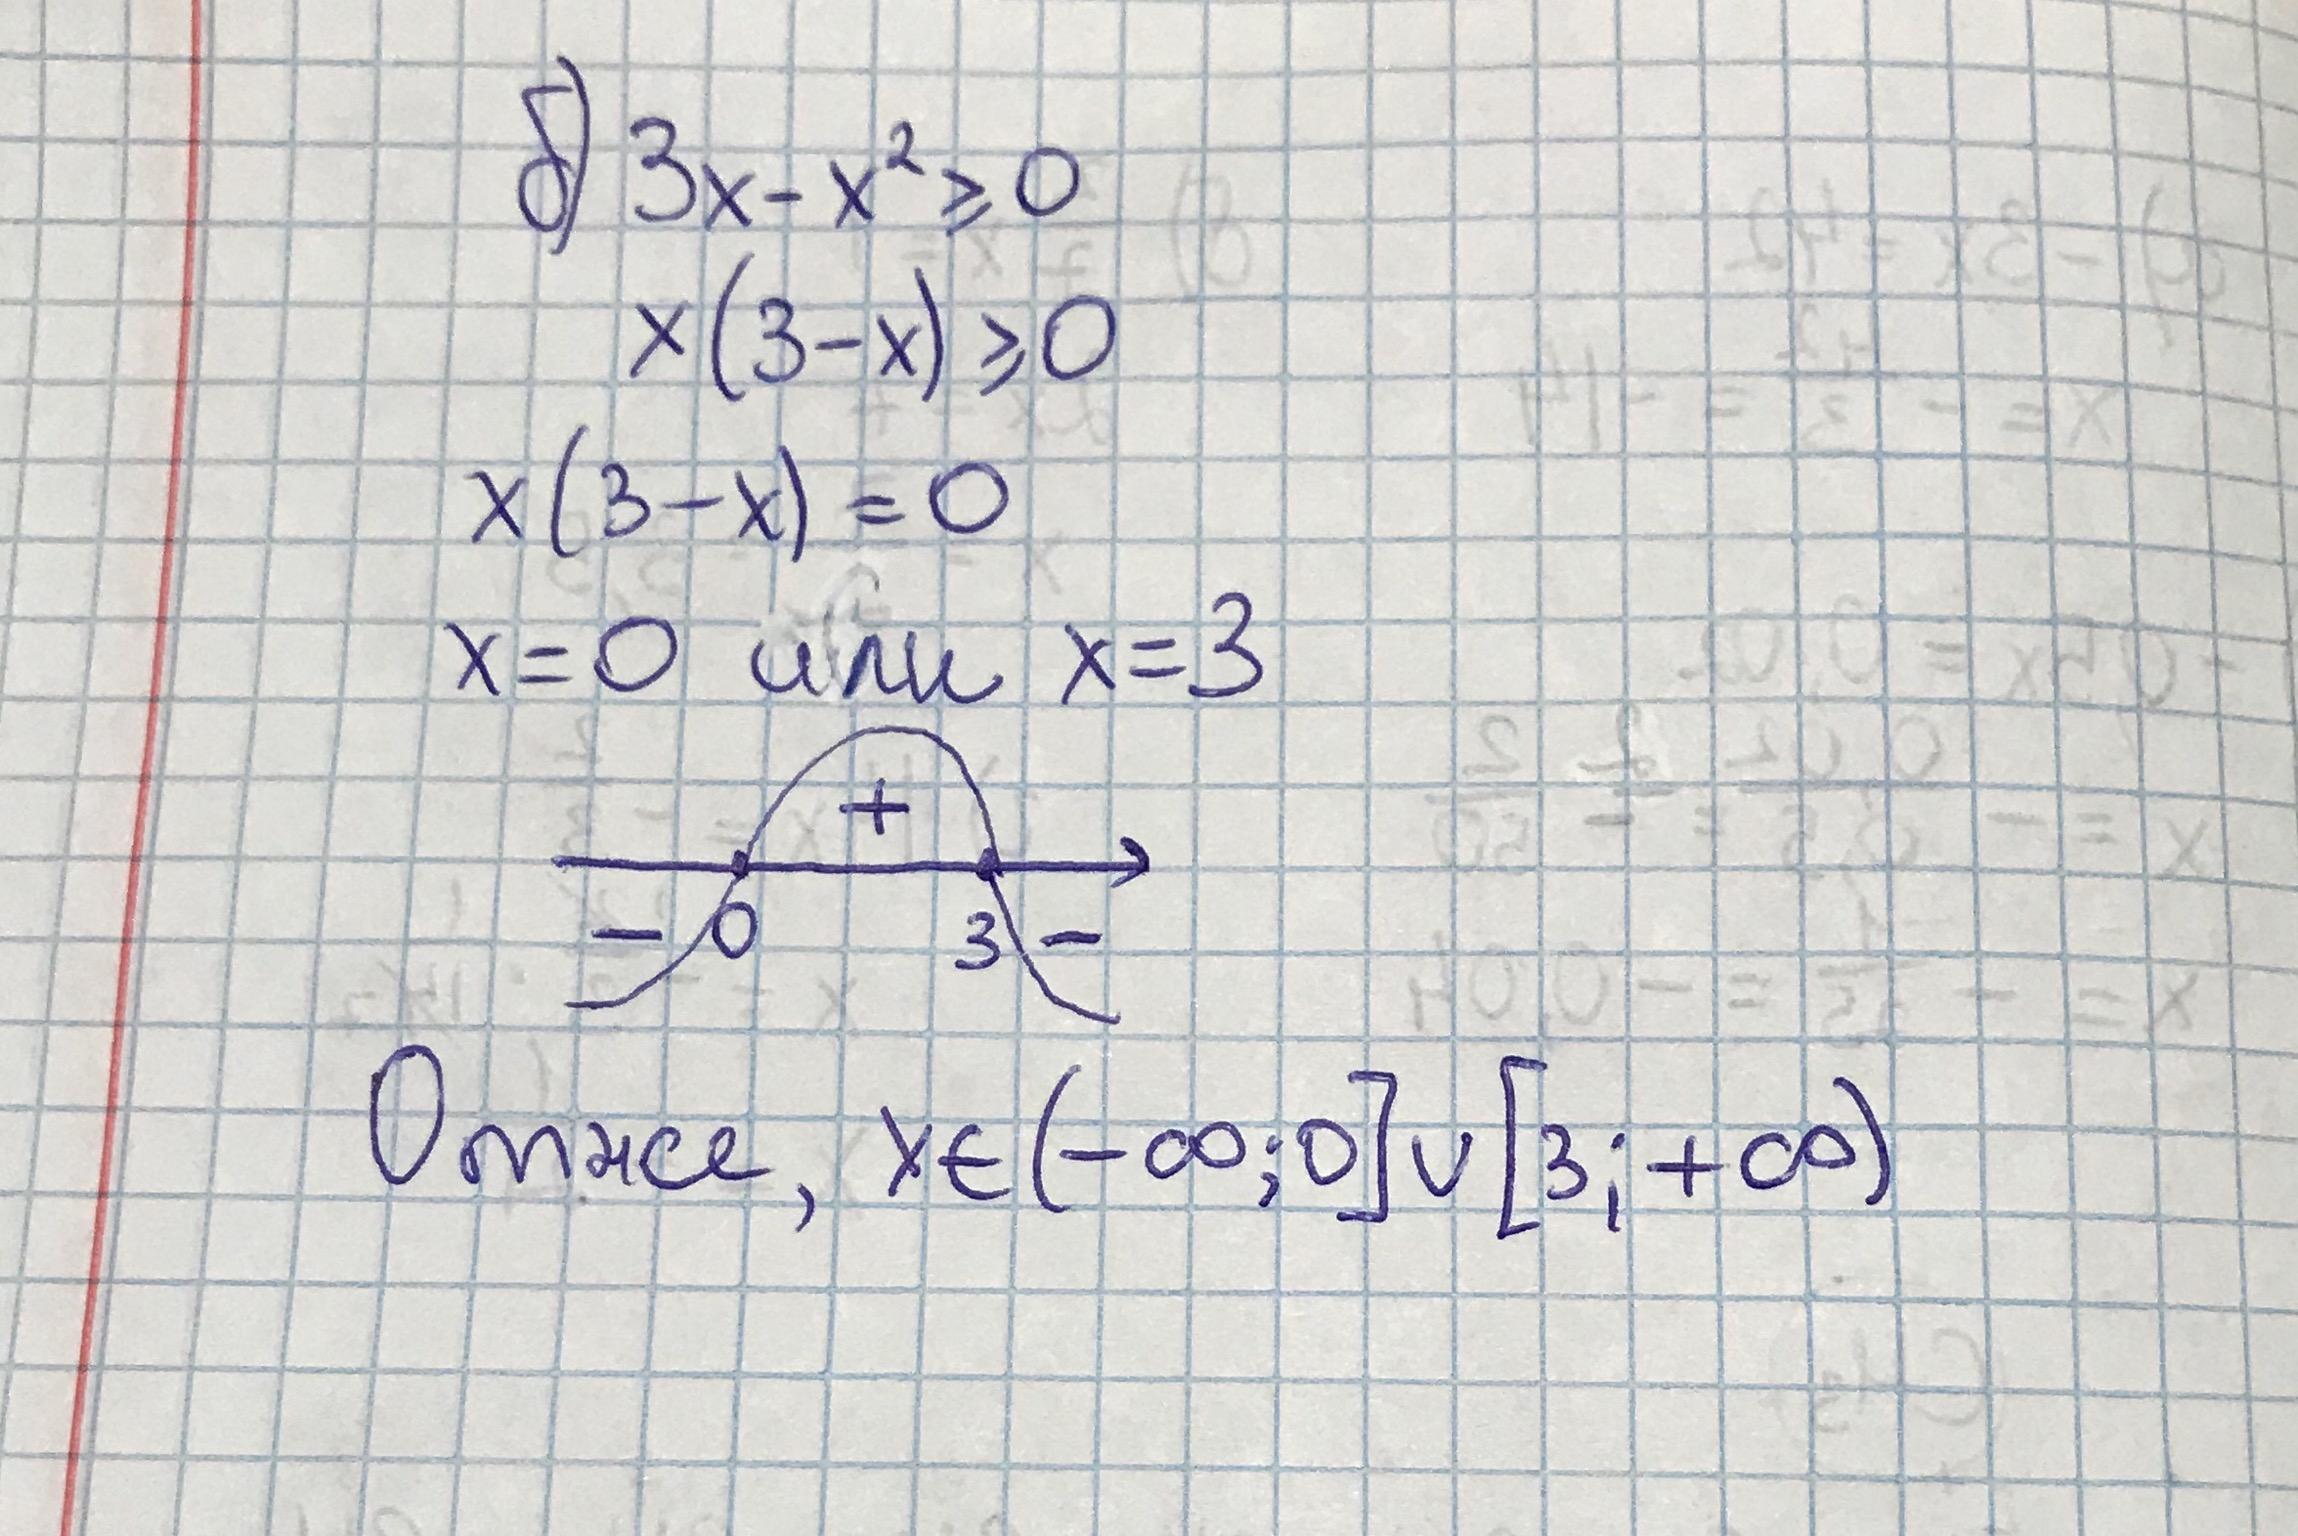 б) 3x - x² ⩾ 0
x(3-x) ⩾ 0
x(3-x) = 0
x=0 или x=3
+
- 0 3 -
Отже, x∈(-∞;0]∪[3;+∞)